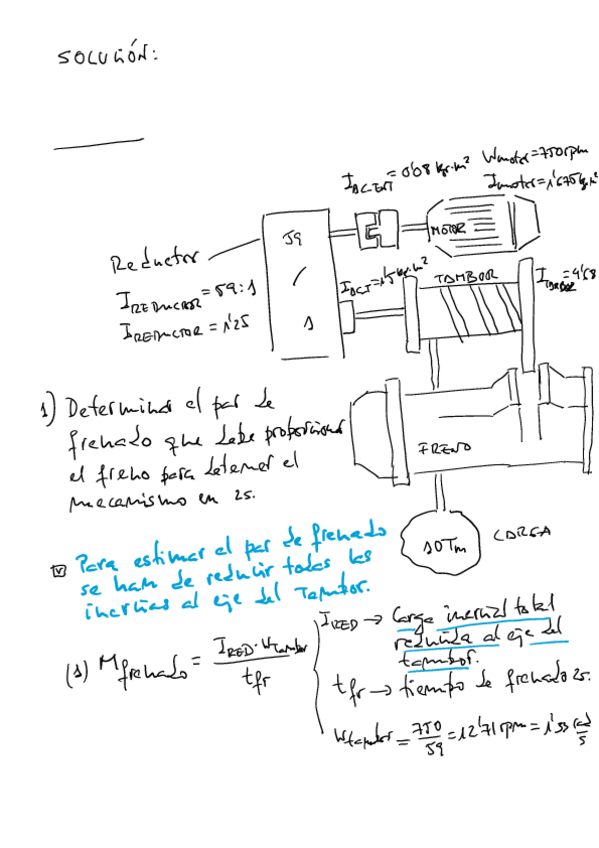 SOLUCIÓN:
I ACENT = 0'08 kg·m² Wmotor = 750 rpm
Imotor = 1'675 kg·m²
59
/
1
MOTOR
Reductor
I REDUCTOR = 59:1
I REDUCTOR = 1'25
I ACT = 1'5 kg·m²
TAMBOR
I TAMBOR = 4'58
1) Determinar el par de
frenado que debe proporcionar
el freno para detener el
mecanismo en 2s.
FRENO
10Tm
CARGA
Para estimar el par de frenado
se han de reducir todas las
inercias al eje del Tambor.
(1) Mfrenado = I RED · Wtambor / tfr
I RED → Carga inercial total
reducida al eje del
tambor.
tfr → tiempo de frenado 2s.
Wtambor = 750/59 = 12'71 rpm = 1'33 rad/s